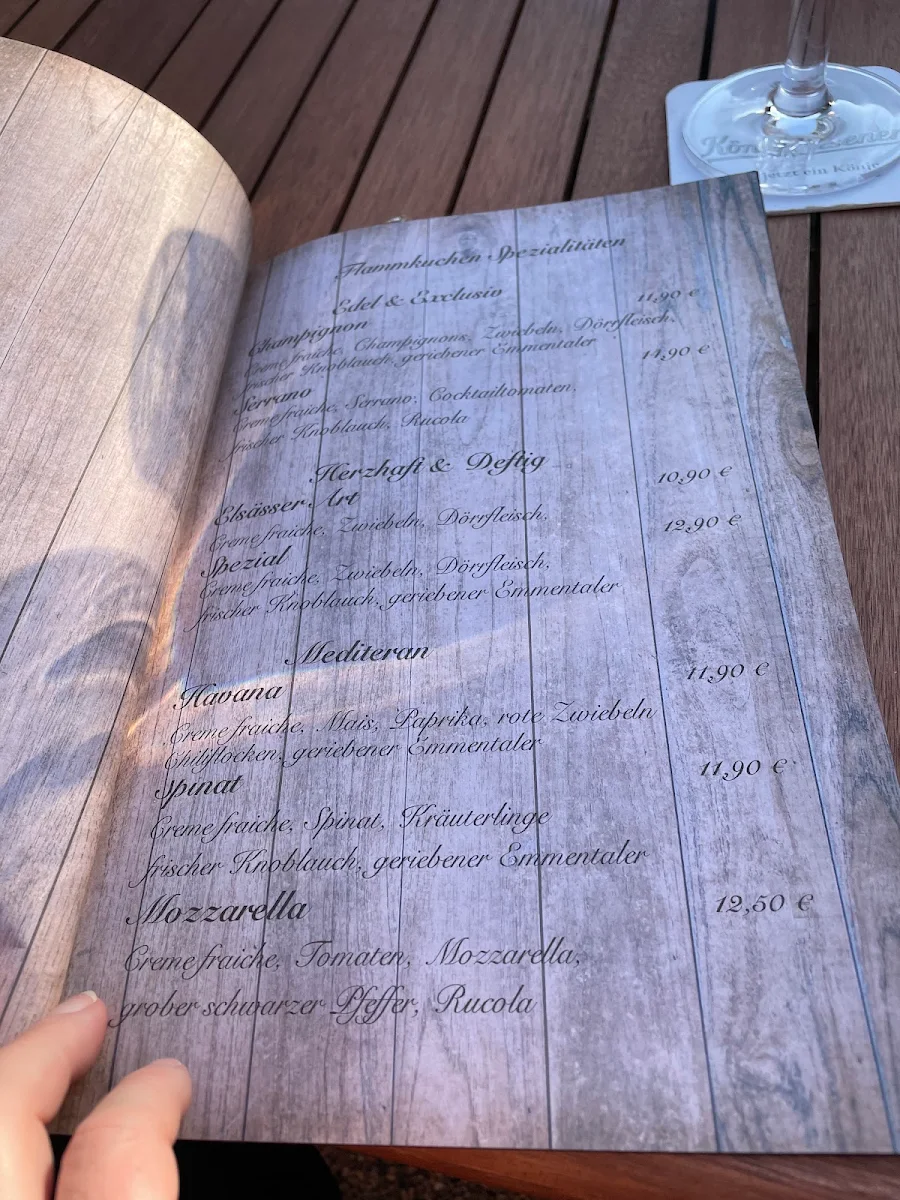 Flammkuchen Spezialitäten
Edel & Exclusiv
Champignon 11,90 €
Creme fraiche, Champignons, Zwiebeln, Dörrfleisch,
frischer Knoblauch, geriebener Emmentaler
Serrano 14,90 €
Creme fraiche, Serrano, Cocktailtomaten,
frischer Knoblauch, Rucola
Herzhaft & Deftig
Elsässer Art 10,90 €
Creme fraiche, Zwiebeln, Dörrfleisch,
Spezial 12,90 €
Creme fraiche, Zwiebeln, Dörrfleisch,
frischer Knoblauch, geriebener Emmentaler
Mediteran
Havana 11,90 €
Creme fraiche, Mais, Paprika, rote Zwiebeln
Chiliflocken, geriebener Emmentaler
Spinat 11,90 €
Creme fraiche, Spinat, Kräuterlinge
frischer Knoblauch, geriebener Emmentaler
Mozzarella 12,50 €
Creme fraiche, Tomaten, Mozzarella,
grober schwarzer Pfeffer, Rucola
jetzt ein König